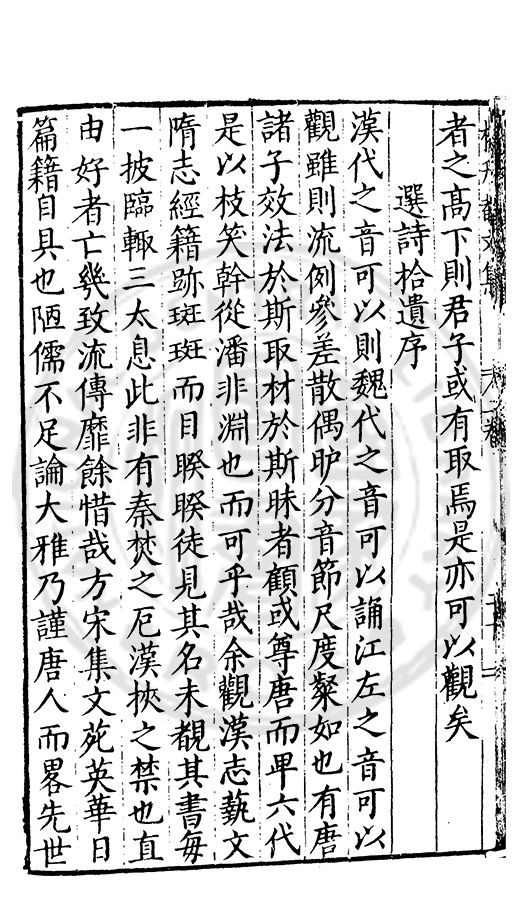 者之髙下則君子或有取焉是亦可以觀矣
選詩拾遺序
漢代之音可以則魏代之音可以誦江左之音可以
觀雖則流例參差散偶昈分音節尺度粲如也有唐
諸子效法於斯取材於斯昧者顧或尊唐而卑六代
是以枝笑幹從潘非淵也而可乎哉余觀漢志藝文
隋志經籍跡斑斑而目睽睽徒見其名未覩其書每
一披臨輙三太息此非有秦焚之厄漢挾之禁也直
由好者亡幾致流傳靡餘惜哉方宋集文苑英華日
篇籍自具也陋儒不足論大雅乃謹唐人而畧先世